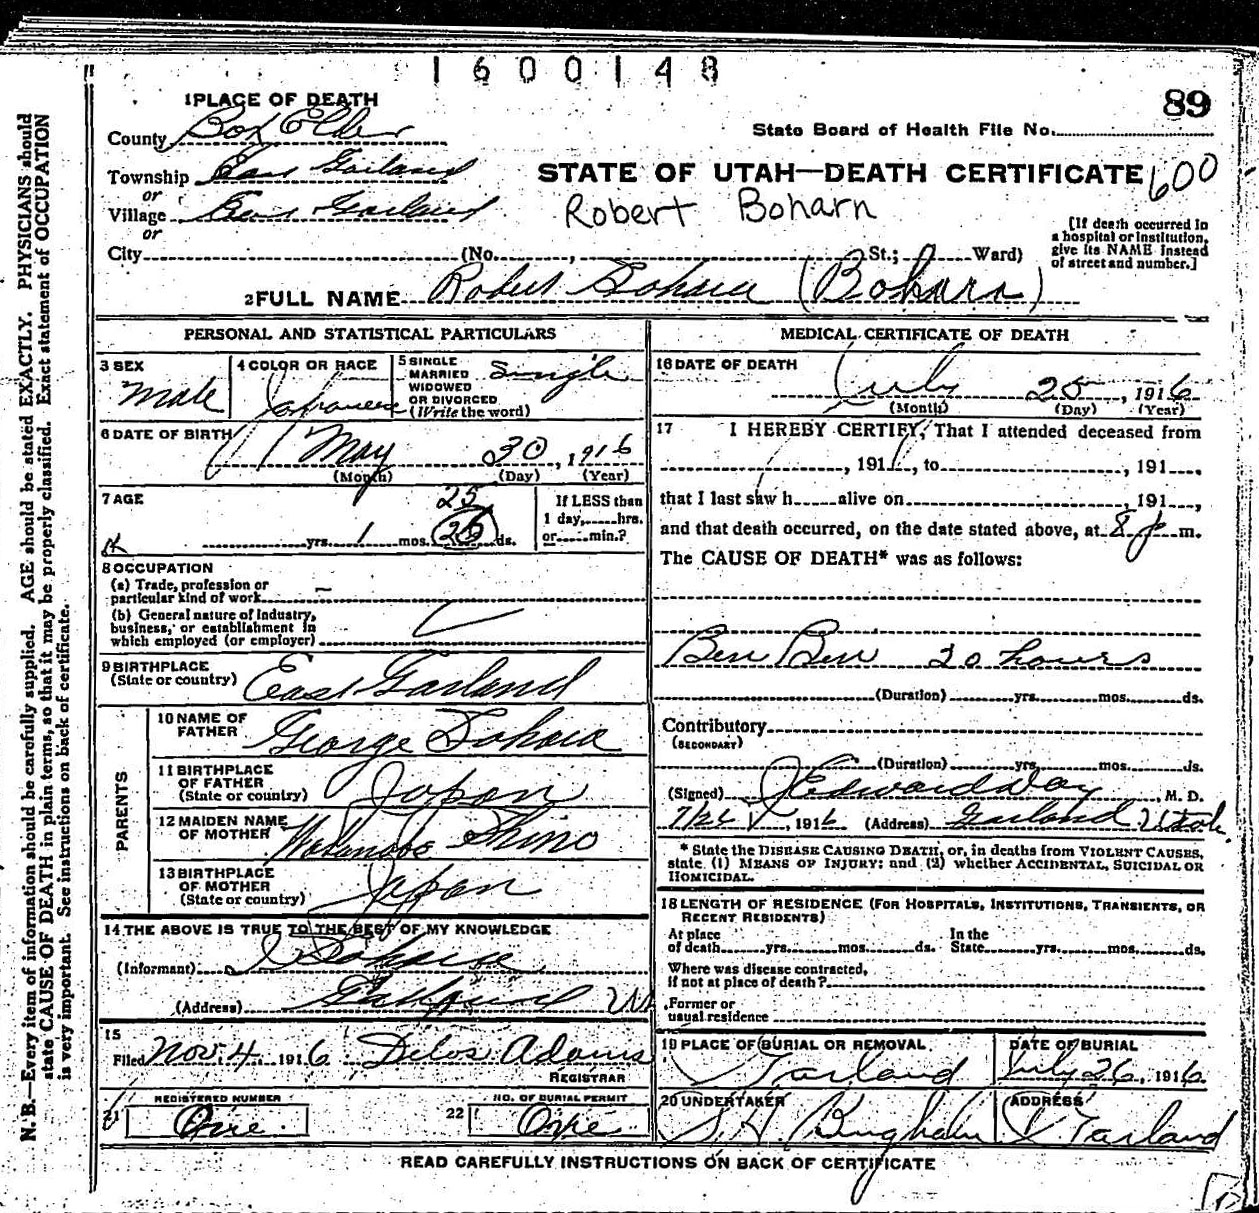 1600148
89
1 PLACE OF DEATH
County Box Elder
State Board of Health File No.
Township East Garland
STATE OF UTAH—DEATH CERTIFICATE 600
or
Village East Garland
Robert Boharn
or
[If death occurred in a hospital or institution, give its NAME instead of street and number.]
City (No. , St.; Ward)
2 FULL NAME Robert (Boharn)
PERSONAL AND STATISTICAL PARTICULARS
3 SEX
Male
4 COLOR OR RACE
Japanese
5 SINGLE
MARRIED
WIDOWED
OR DIVORCED
(Write the word)
Single
6 DATE OF BIRTH
May 30, 1916
(Month) (Day) (Year)
7 AGE
25
yrs. 1 mos. 26 ds.
If LESS than
1 day, hrs.
or min.?
8 OCCUPATION
(a) Trade, profession or
particular kind of work
(b) General nature of industry,
business, or establishment in
which employed (or employer)
9 BIRTHPLACE
(State or country)
East Garland
PARENTS
10 NAME OF
FATHER
George
11 BIRTHPLACE
OF FATHER
(State or country)
Japan
12 MAIDEN NAME
OF MOTHER
Watanabe Shino
13 BIRTHPLACE
OF MOTHER
(State or country)
Japan
14 THE ABOVE IS TRUE TO THE BEST OF MY KNOWLEDGE
(Informant)
(Address)
15
Filed Nov. 4 1916 Delos Adams
REGISTRAR
21
REGISTERED NUMBER
One
22
NO. OF BURIAL PERMIT
One
MEDICAL CERTIFICATE OF DEATH
16 DATE OF DEATH
July 25, 1916
(Month) (Day) (Year)
17 I HEREBY CERTIFY, That I attended deceased from
, 191 , to , 191 ,
that I last saw h alive on , 191 ,
and that death occurred, on the date stated above, at 8 p m.
The CAUSE OF DEATH* was as follows:
Beri Beri 20 hours
(Duration) yrs. mos. ds.
Contributory
(SECONDARY)
(Duration) yrs. mos. ds.
(Signed) J Edward Day, M. D.
7/26, 1916 (Address) Garland Utah
* State the DISEASE CAUSING DEATH, or, in deaths from VIOLENT CAUSES,
state (1) MEANS OF INJURY; and (2) whether ACCIDENTAL, SUICIDAL OR
HOMICIDAL.
18 LENGTH OF RESIDENCE (FOR HOSPITALS, INSTITUTIONS, TRANSIENTS, OR
RECENT RESIDENTS)
At place
of death yrs. mos. ds.
In the
State yrs. mos. ds.
Where was disease contracted,
if not at place of death?
Former or
usual residence
19 PLACE OF BURIAL OR REMOVAL
Garland
DATE OF BURIAL
July 26, 1916
20 UNDERTAKER
S. H. Bingham
ADDRESS
Garland
READ CAREFULLY INSTRUCTIONS ON BACK OF CERTIFICATE
N. B.—Every item of information should be carefully supplied. AGE should be stated EXACTLY. PHYSICIANS should
state CAUSE OF DEATH in plain terms, so that it may be properly classified. Exact statement of OCCUPATION
is very important. See instructions on back of certificate.